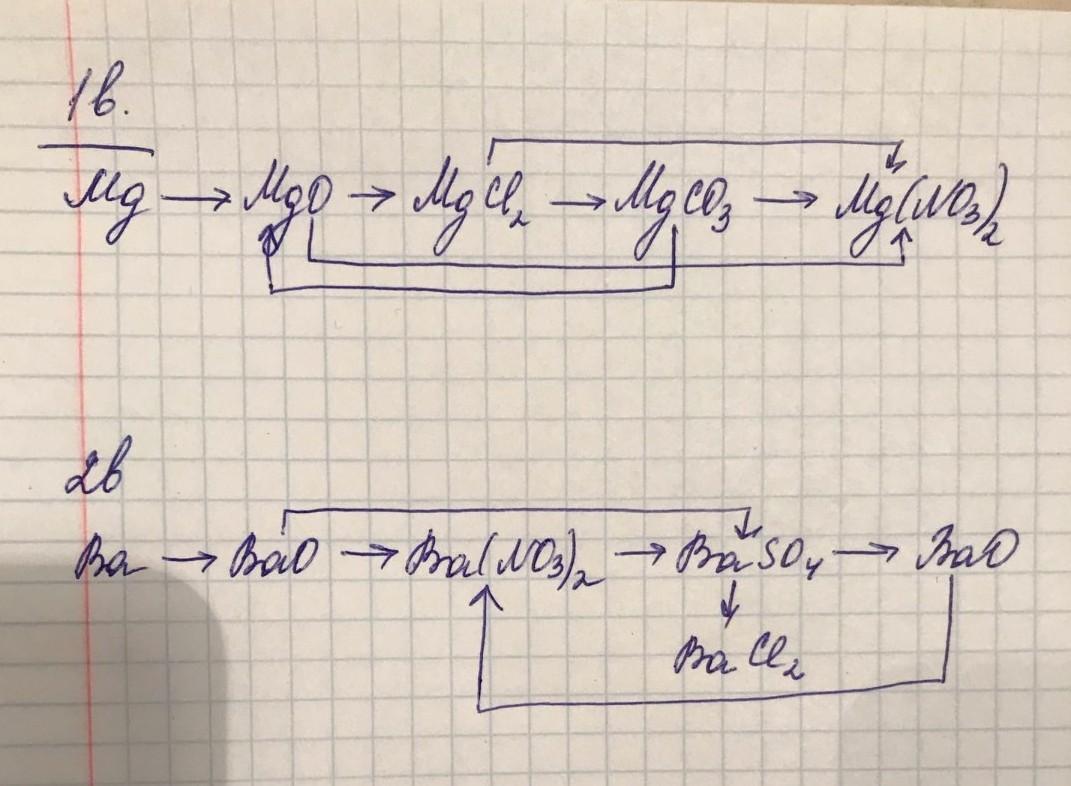 1в.
Mg → MgO → MgCl₂ → MgCO₃ → Mg(NO₃)₂
2в
Ba → BaO → Ba(NO₃)₂ → BaSO₄ → BaO
↓
BaCl₂